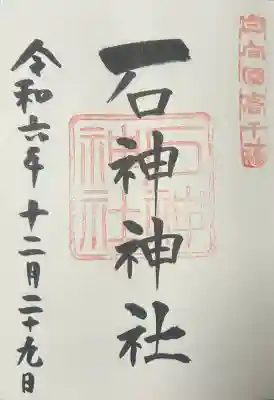 石神神社
令和六年十二月二十九日
石神
神社